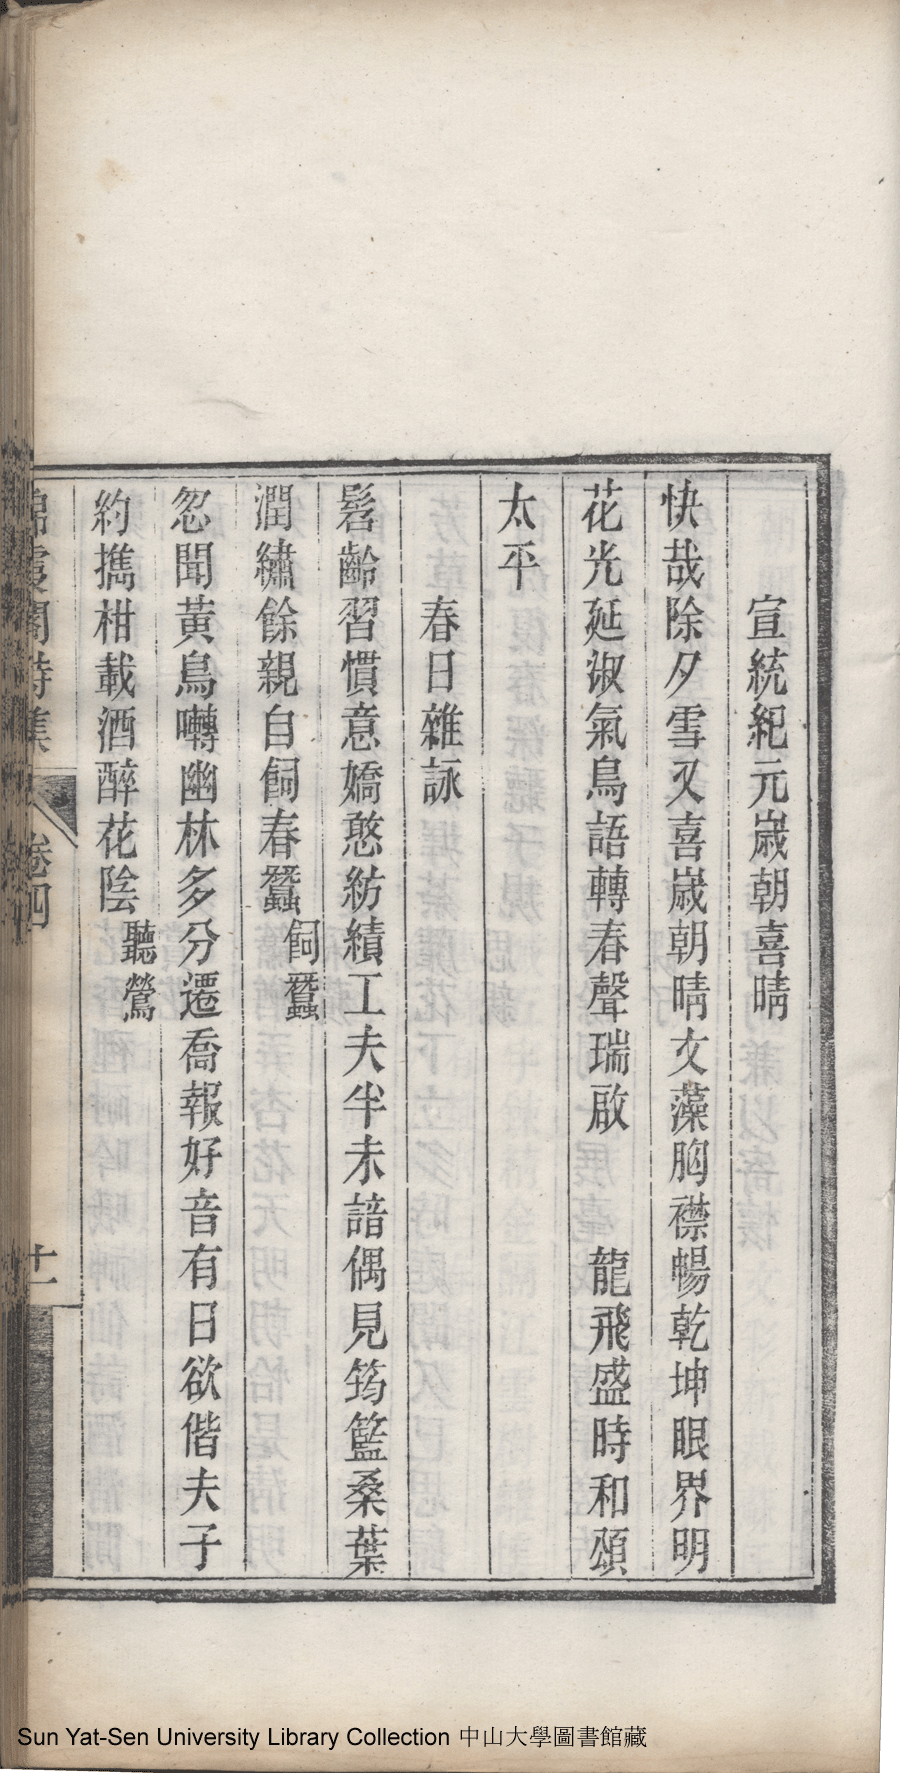 宣統紀元嵗朝喜晴
快哉除夕雪又喜嵗朝晴文藻胸襟暢乾坤眼界明
花光延淑氣鳥語轉春聲瑞啟　龍飛盛時和頌
太平
春日雜詠
髫齡習慣意嬌憨紡績工夫半未諳偶見筠籃桑葉
潤繡餘親自飼春蠶飼蠶
忽聞黃鳥囀幽林多分遷喬報好音有日欲偕夫子
約攜柑載酒醉花陰聽鶯
錦霞閣詩集　卷四　十一
Sun Yat-Sen University Library Collection 中山大學圖書館藏